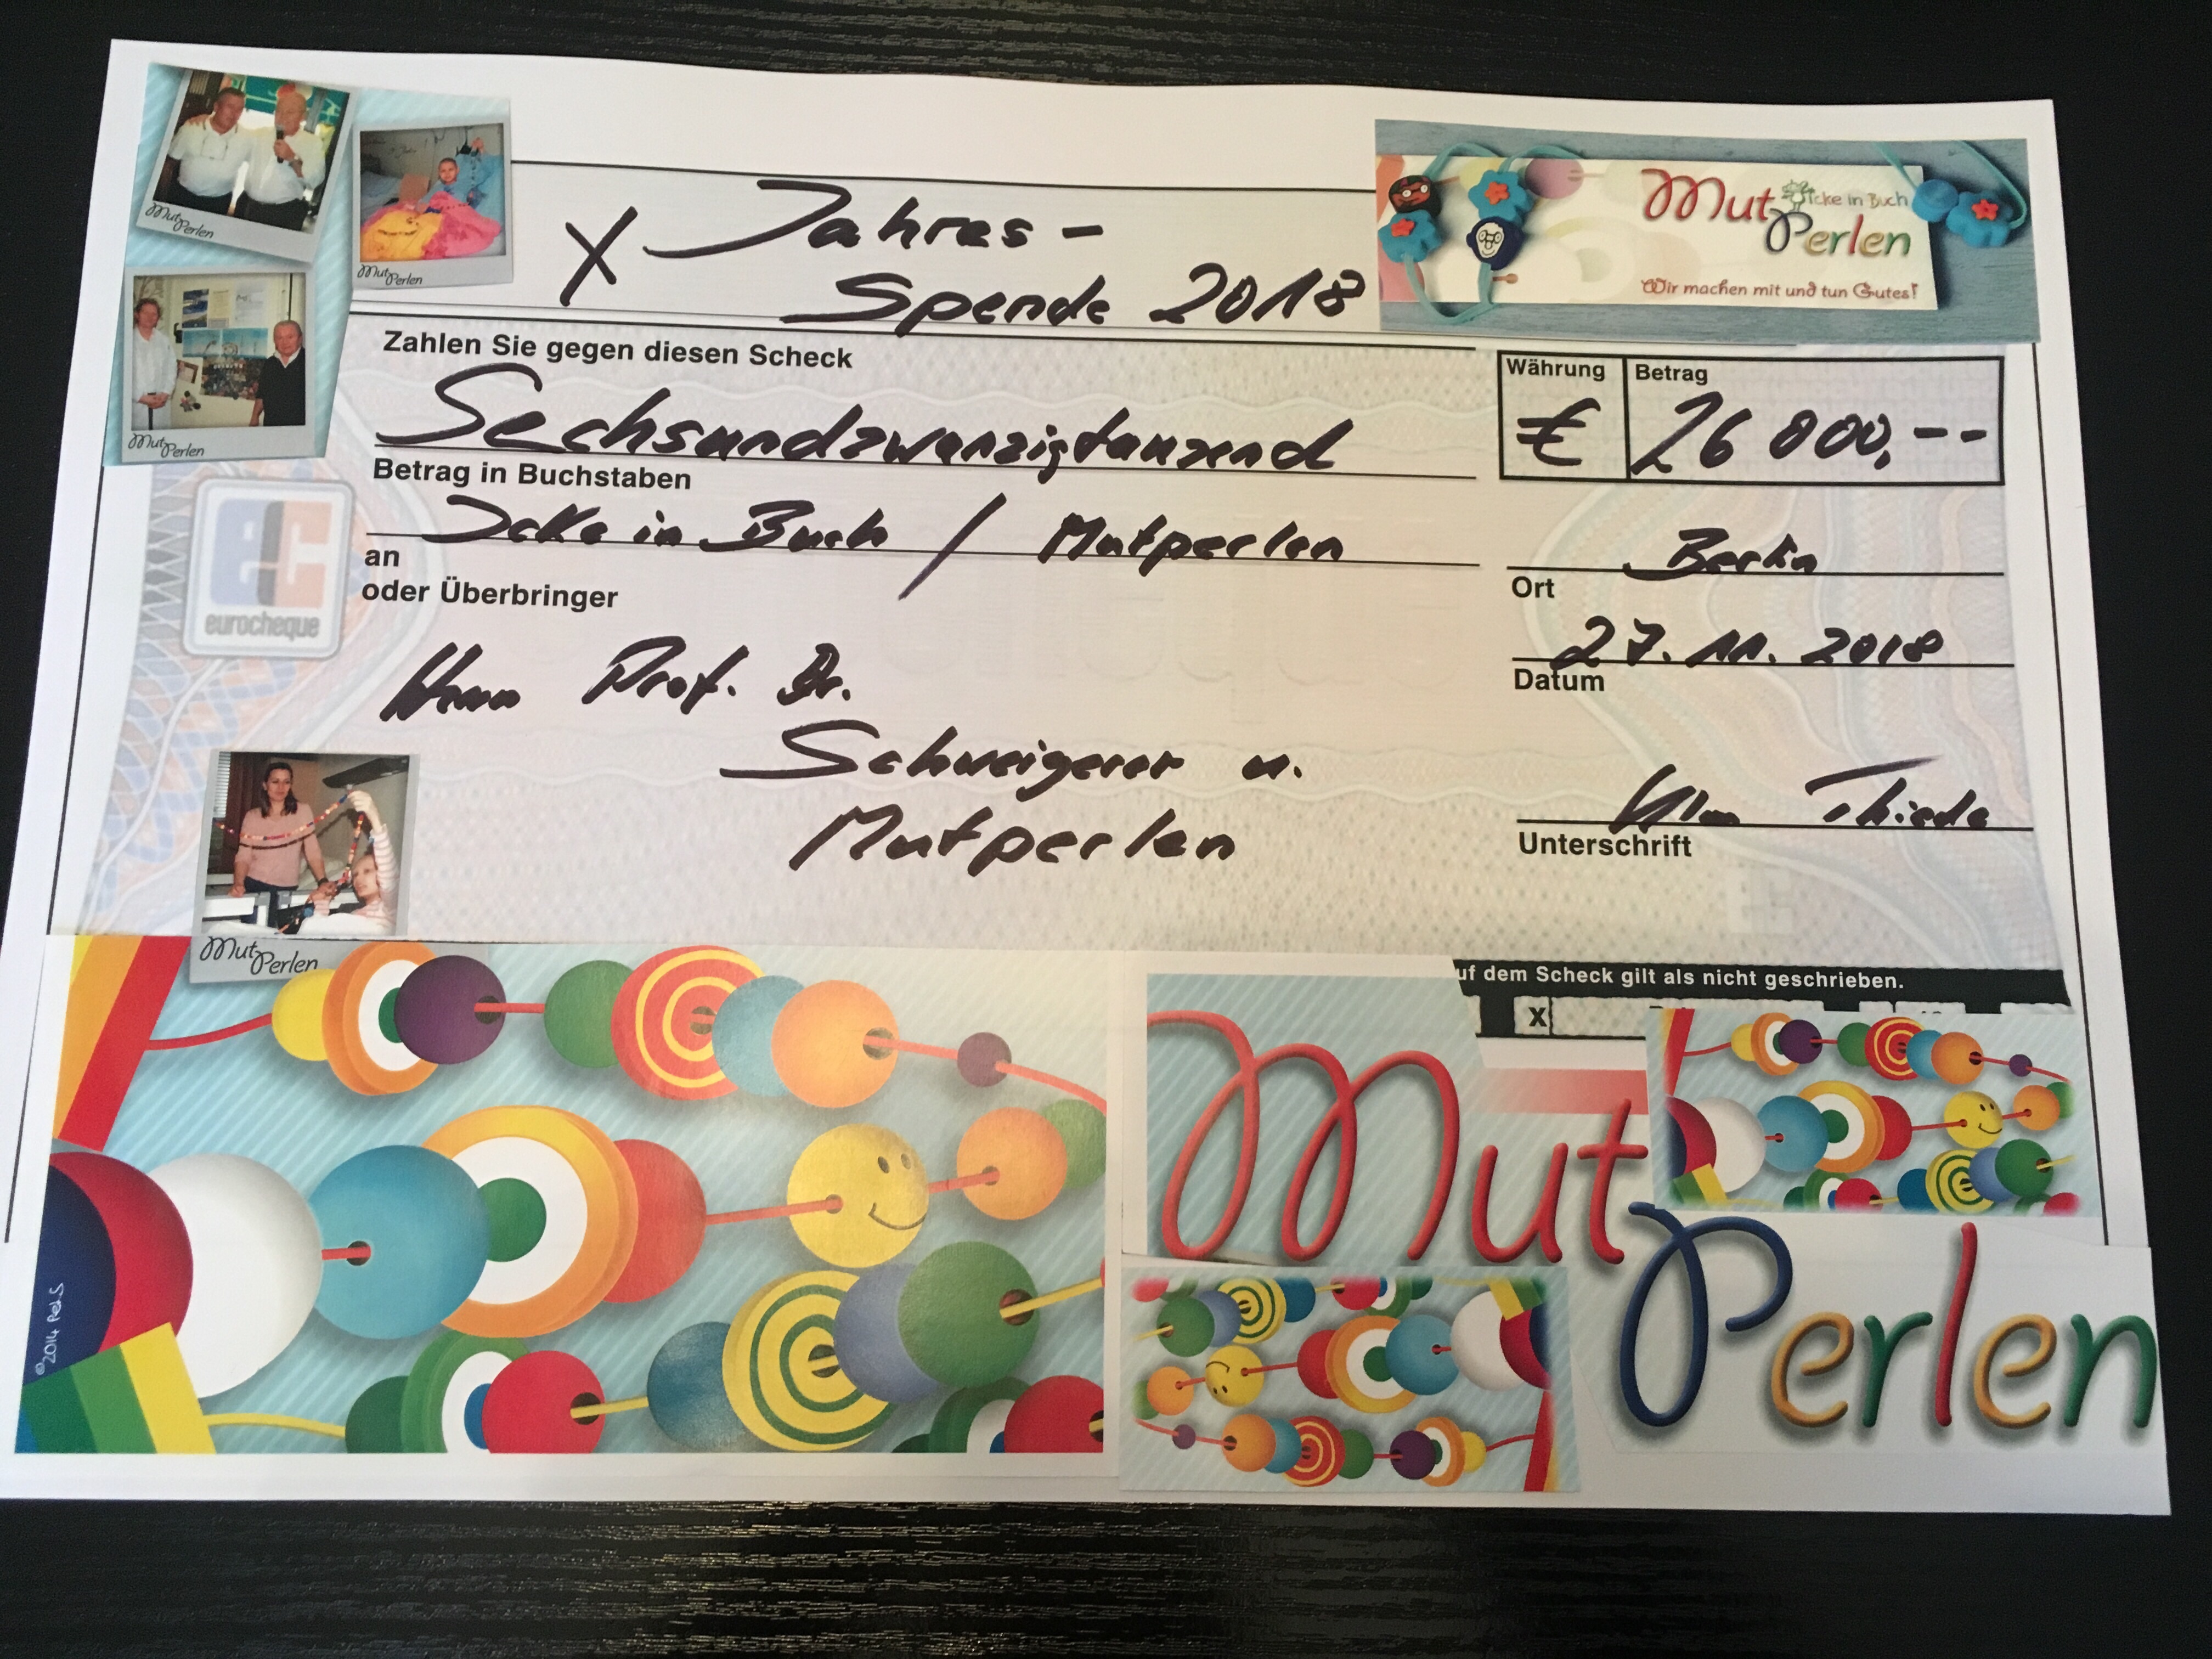 Mut Perlen
Mut Perlen
Mut Perlen
X Jahres-
Spende 2018
Mut Icke in Buch
Perlen
Wir machen mit und tun Gutes!
Zahlen Sie gegen diesen Scheck
Sechsundzwanzigtausend
Betrag in Buchstaben
Währung Betrag
€ 26 000,--
Icke in Buch / Mutperlen
an
oder Überbringer
Berlin
Ort
27.11.2018
Datum
eurocheque
Herrn Prof. Dr.
Schweigerer u.
Mutperlen
Thiede
Unterschrift
Mut Perlen
uf dem Scheck gilt als nicht geschrieben.
X
Mut
Perlen
©2014